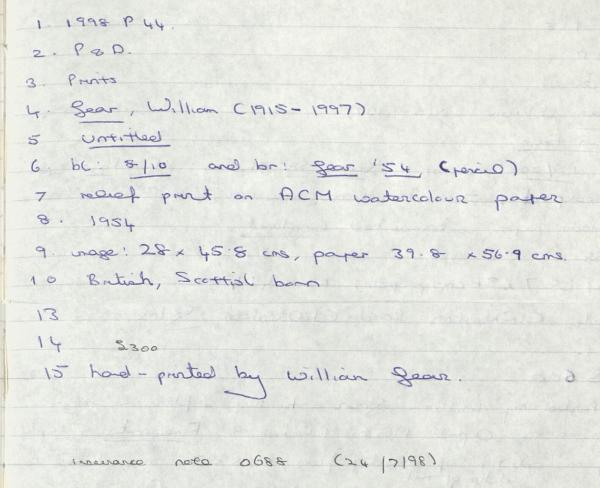 1 1998 P 44.
2. P & D.
3. Prints
4. Gear, William (1915-1997)
5 Untitled
6 bl: 8/10 and br: Gear '54, (pencil)
7 relief print on ACM watercolour paper
8. 1954
9. image: 28 x 45.8 cms, paper 39.8 x 56.9 cms.
10 British, Scottish born
13
14 £300
15 hand-printed by William Gear.
insurance note 0688 (24/7/98)